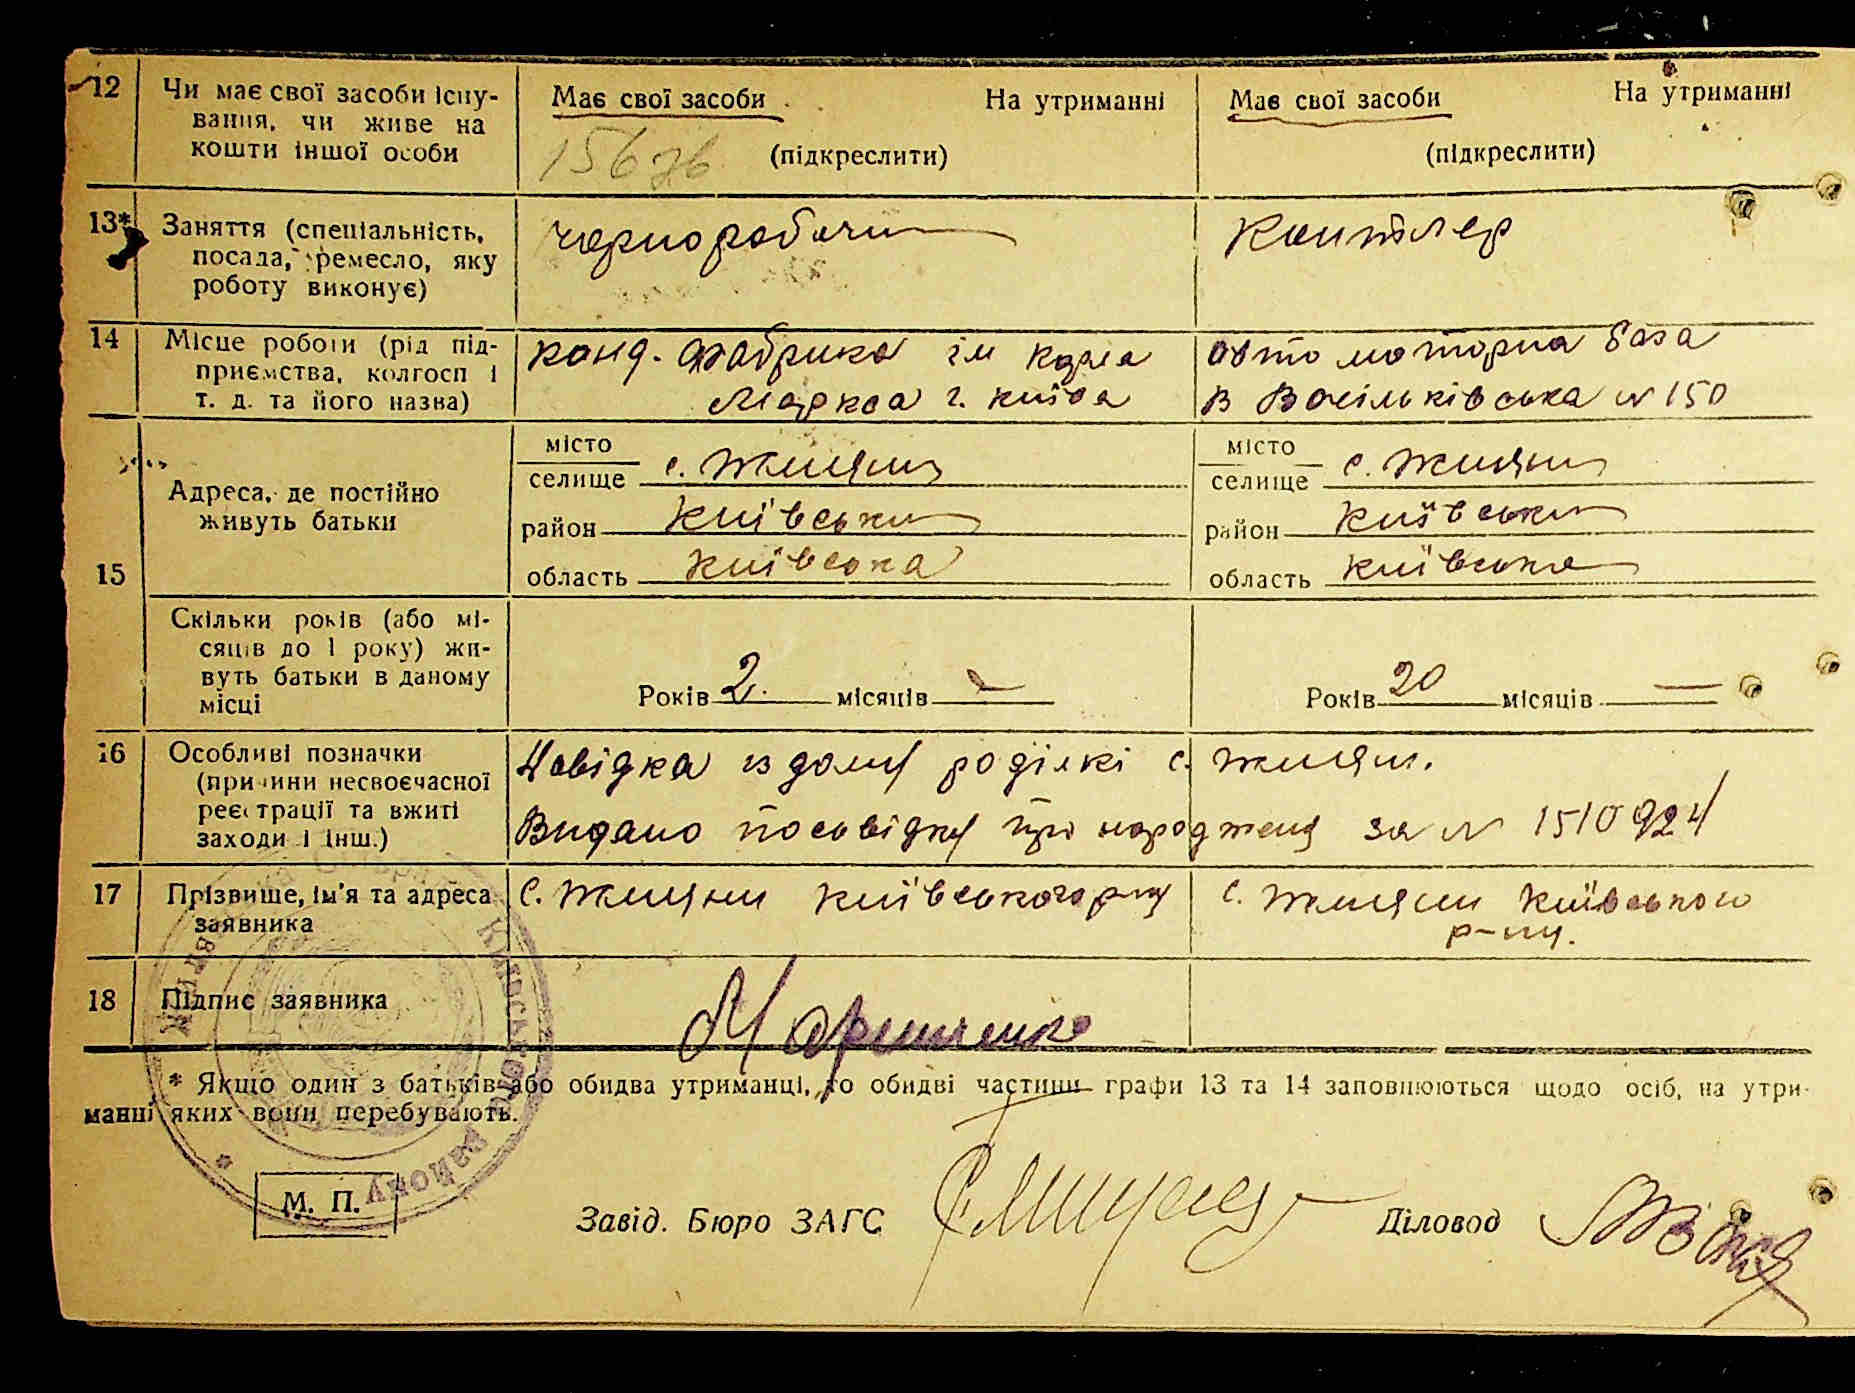 12 Чи має свої засоби існу-
вання, чи живе на
кошти іншої особи
Має свої засоби На утриманні
(підкреслити)
Має свої засоби На утриманні
(підкреслити)
13* Заняття (спеціальність,
посада, ремесло, яку
роботу виконує)
чорноробочий
14 Місце роботи (рід під-
приємства, колгосп і
т. д. та його назва)
конд. фабрика ім Карла
Маркса г. київа
авто моторна база
В Васільківська № 150
15 Адреса, де постійно
живуть батьки
місто
селище с. Жиляни
район Київський
область Київська
місто
селище с. Жиляни
район Київський
область Київська
Скільки років (або мі-
сяців до 1 року) жи-
вуть батьки в даному
місці
Років 2. місяців —
Років 20 місяців —
16 Особливі позначки
(причини несвоєчасної
реєстрації та вжиті
заходи і інш.)
Довідка із дому роділкі с. Жиляни.
Видано посвідку про народженя за № 1510924
17 Прізвище, ім'я та адреса
заявника
с. Жиляни Київського р-ну
с. Жиляни Київського
р-ну.
18 Підпис заявника
* Якщо один з батьків або обидва утриманці, то обидві частини графи 13 та 14 заповнюються щодо осіб, на утри-
манні яких вони перебувають.
Київського району
М. П.
Завід. Бюро ЗАГС Діловод